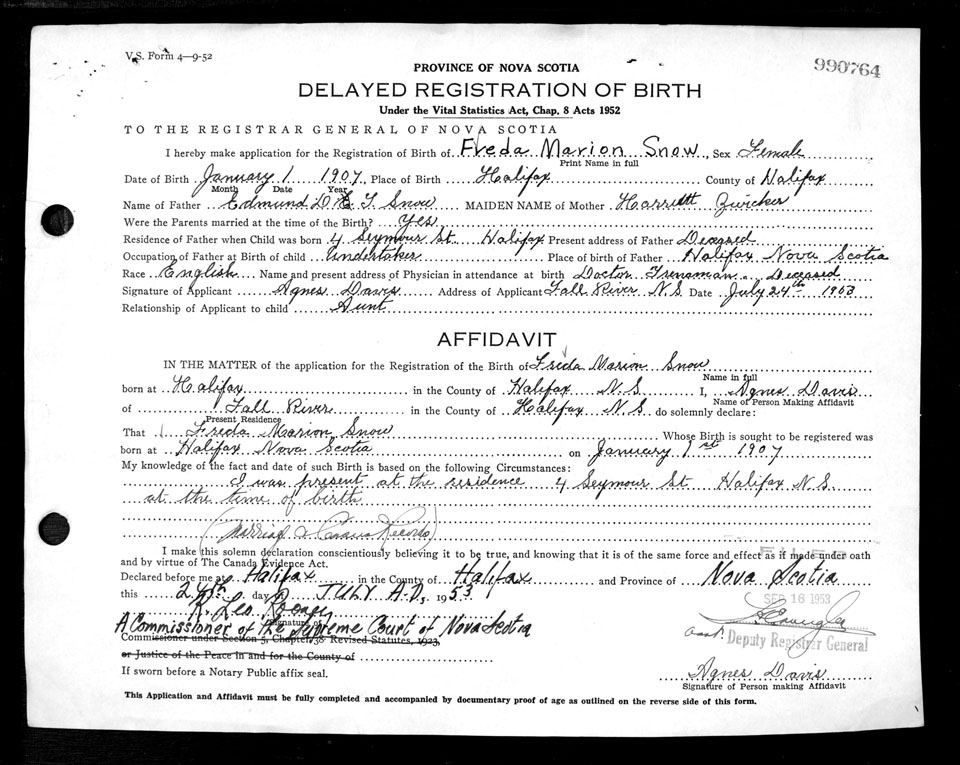 V.S. Form 4—9-52
990764
PROVINCE OF NOVA SCOTIA
DELAYED REGISTRATION OF BIRTH
Under the Vital Statistics Act, Chap. 8 Acts 1952
TO THE REGISTRAR GENERAL OF NOVA SCOTIA
I hereby make application for the Registration of Birth of Freda Marion Snow, Sex Female
Print Name in full
Date of Birth January 1 1907, Place of Birth Halifax County of Halifax
Month Date Year
Name of Father Edmund D. E. T Snow MAIDEN NAME of Mother Harriett Zwicker
Were the Parents married at the time of the Birth? Yes
Residence of Father when Child was born 4 Seymour St. Halifax Present address of Father Deceased
Occupation of Father at Birth of child Undertaker Place of birth of Father Halifax Nova Scotia
Race English Name and present address of Physician in attendance at birth Doctor Deceased
Signature of Applicant Agnes Davis Address of Applicant Fall River N.S. Date July 24th 1953
Relationship of Applicant to child Aunt
AFFIDAVIT
IN THE MATTER of the application for the Registration of the Birth of Freda Marion Snow
Name in full
born at Halifax in the County of Halifax N.S. I, Agnes Davis
Name of Person Making Affidavit
of Fall River in the County of Halifax N.S. do solemnly declare:
Present Residence
That Freda Marion Snow Whose Birth is sought to be registered was
born at Halifax Nova Scotia on January 1st 1907
My knowledge of the fact and date of such Birth is based on the following Circumstances:
I was present at the residence 4 Seymour St Halifax N.S.
at the time of birth
(Marriage & Census Records)
I make this solemn declaration conscientiously believing it to be true, and knowing that it is of the same force and effect as if made under oath
and by virtue of The Canada Evidence Act.
FILED
Declared before me at Halifax in the County of Halifax and Province of Nova Scotia
this 24th day of JULY A.D., 1953
SEP 16 1953
R. Leo
Signature of
A Commissioner of the Supreme Court of Nova Scotia
Asst. Deputy Registrar General
Commissioner under Section 5, Chapter 38 Revised Statutes, 1923,
or Justice of the Peace in and for the County of
Agnes Davis
If sworn before a Notary Public affix seal.
Signature of Person making Affidavit
This Application and Affidavit must be fully completed and accompanied by documentary proof of age as outlined on the reverse side of this form.